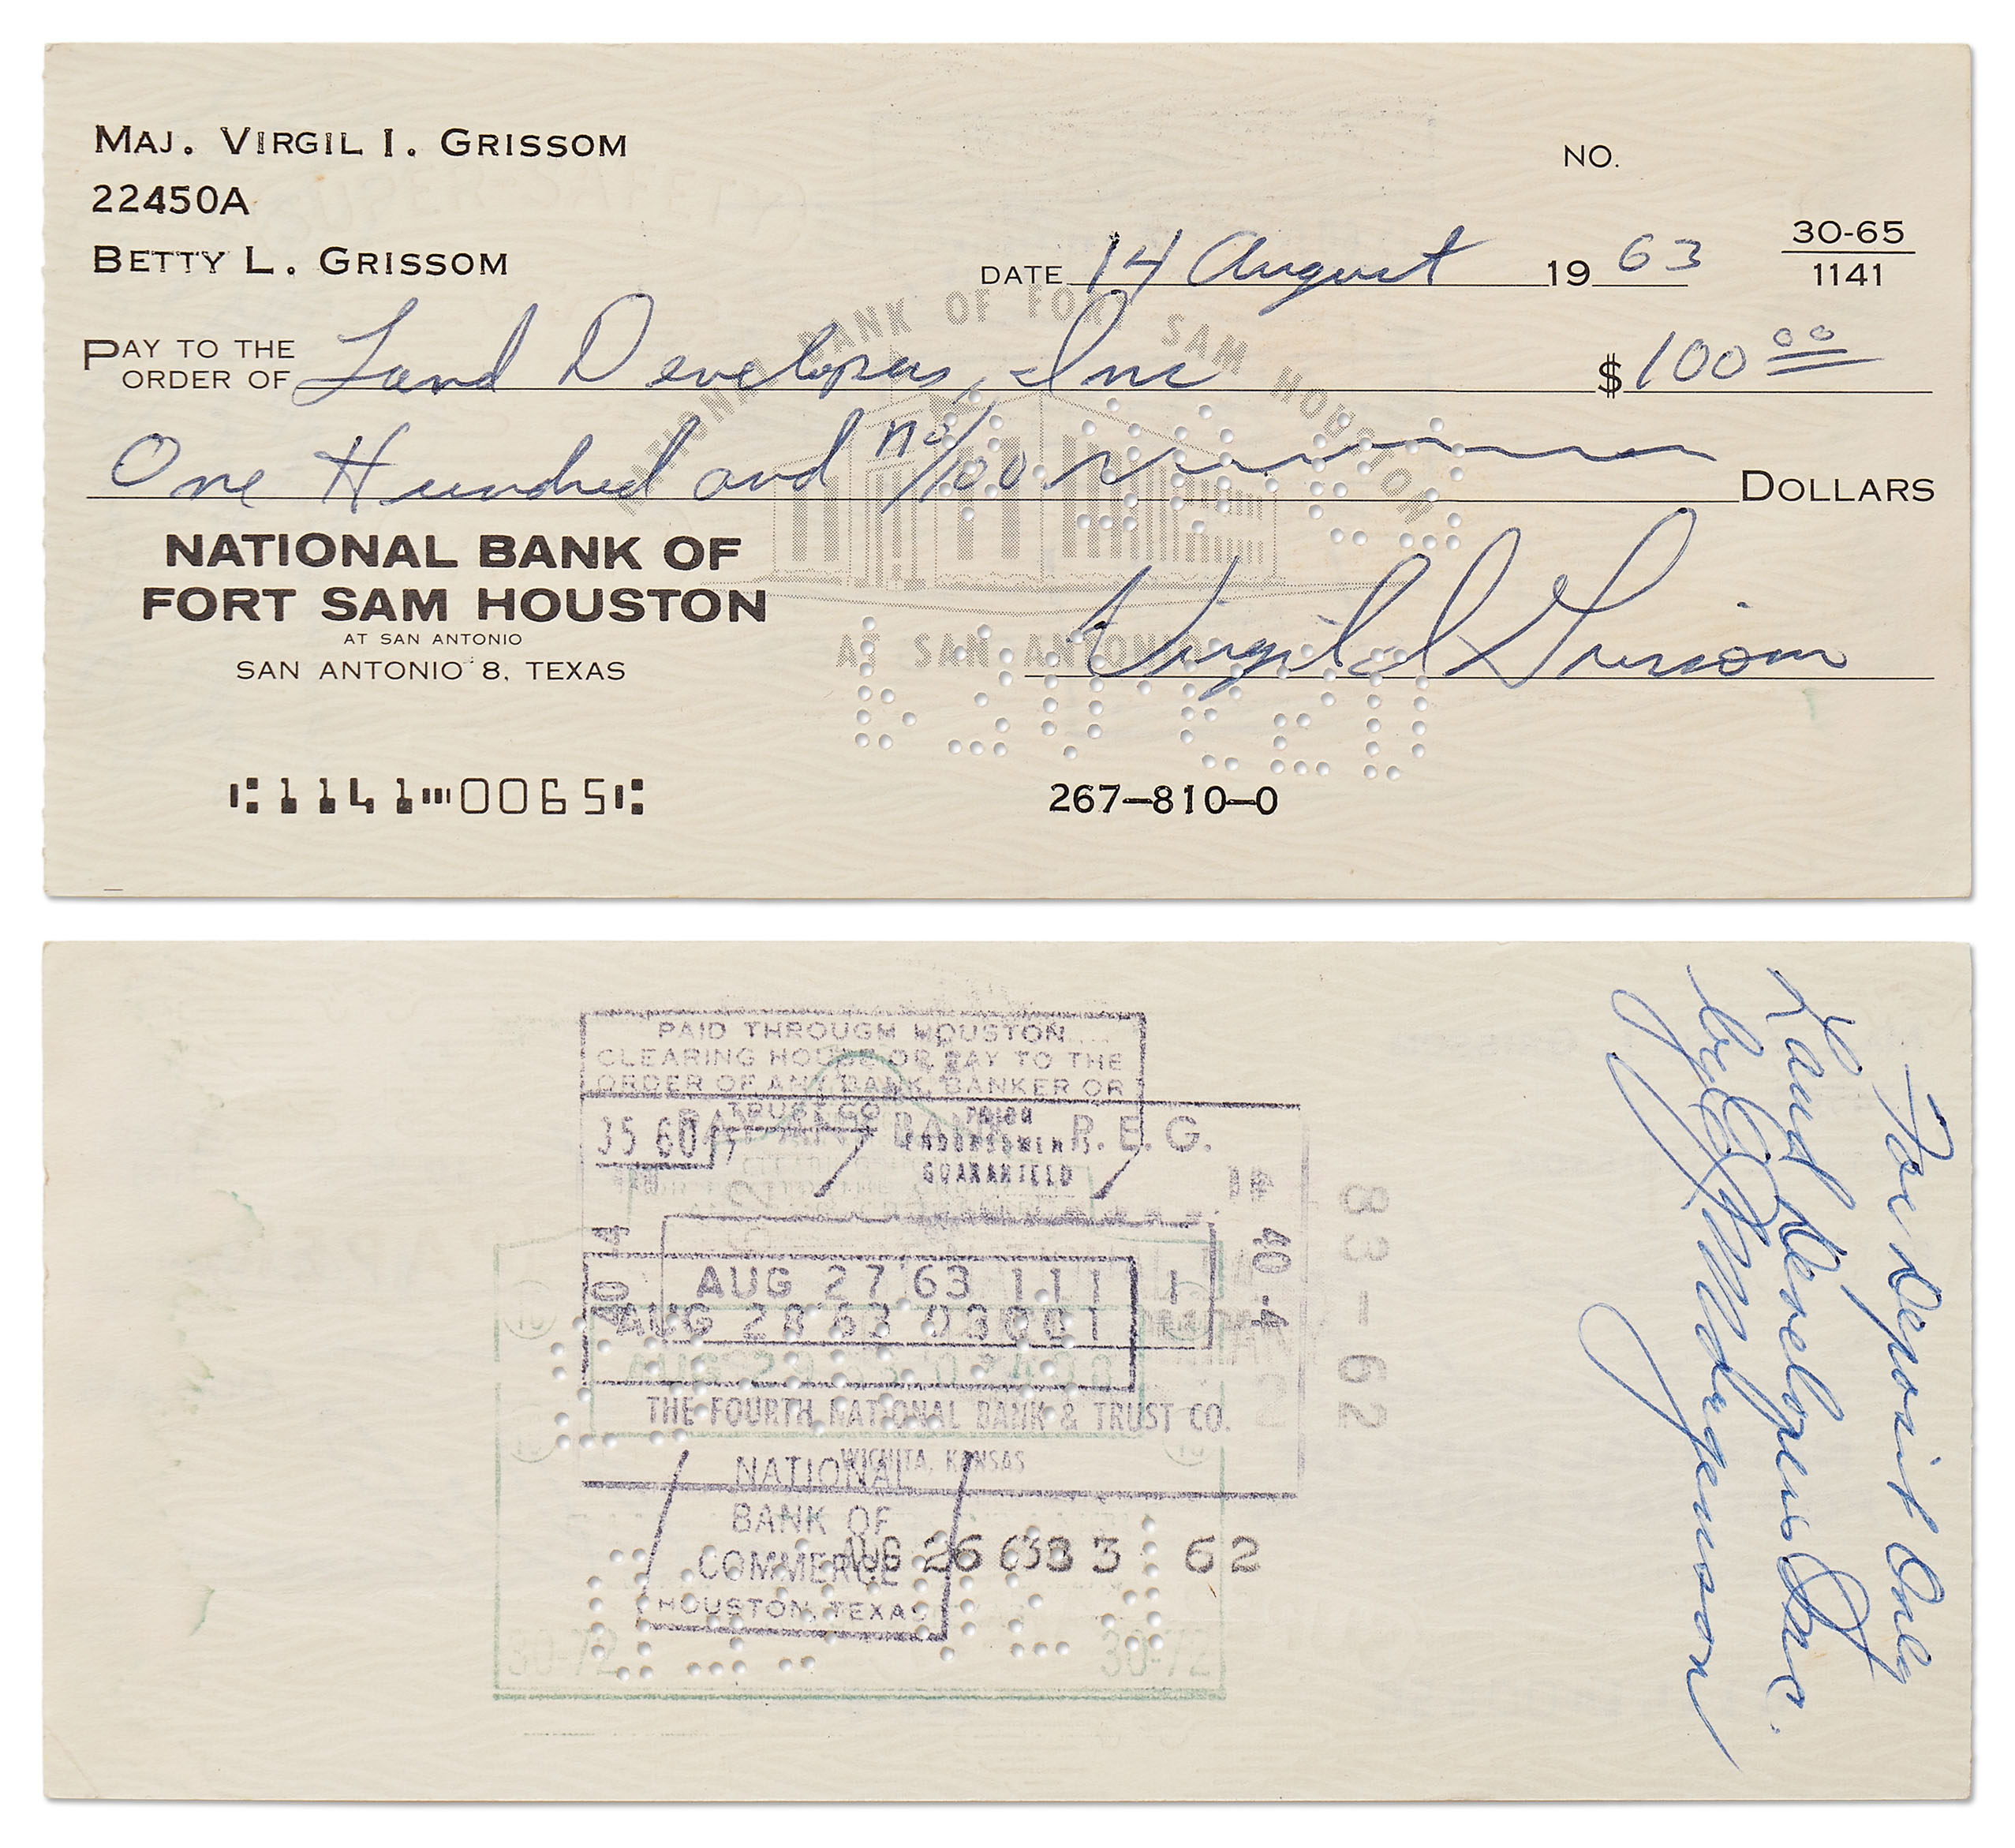 MAJ. VIRGIL I. GRISSOM
22450A
BETTY L. GRISSOM
NO.
30-65
1141
DATE 14 August 1963
PAY TO THE ORDER OF Land Developers, Inc $100 00
One Hundred and no/100 DOLLARS
NATIONAL BANK OF FORT SAM HOUSTON
AT SAN ANTONIO
NATIONAL BANK OF
FORT SAM HOUSTON
AT SAN ANTONIO
SAN ANTONIO 8, TEXAS
Virgil I Grissom
1141 0065
267-810-0
PAID THROUGH HOUSTON
CLEARING HOUSE OR PAY TO THE
ORDER OF ANY BANK, BANKER OR
TRUST CO
P.E.G.
PRIOR
ENDORSEMENTS
GUARANTEED
40-4
40-4
83-62
AUG 27 '63 111 1
AUG 28 '63 00001
THE FOURTH NATIONAL BANK & TRUST CO.
WICHITA, KANSAS
NATIONAL
BANK OF
COMMERCE
HOUSTON, TEXAS
AUG 26 63 83 62
30-72 30-72
For Deposit Only
Land Developers Inc.